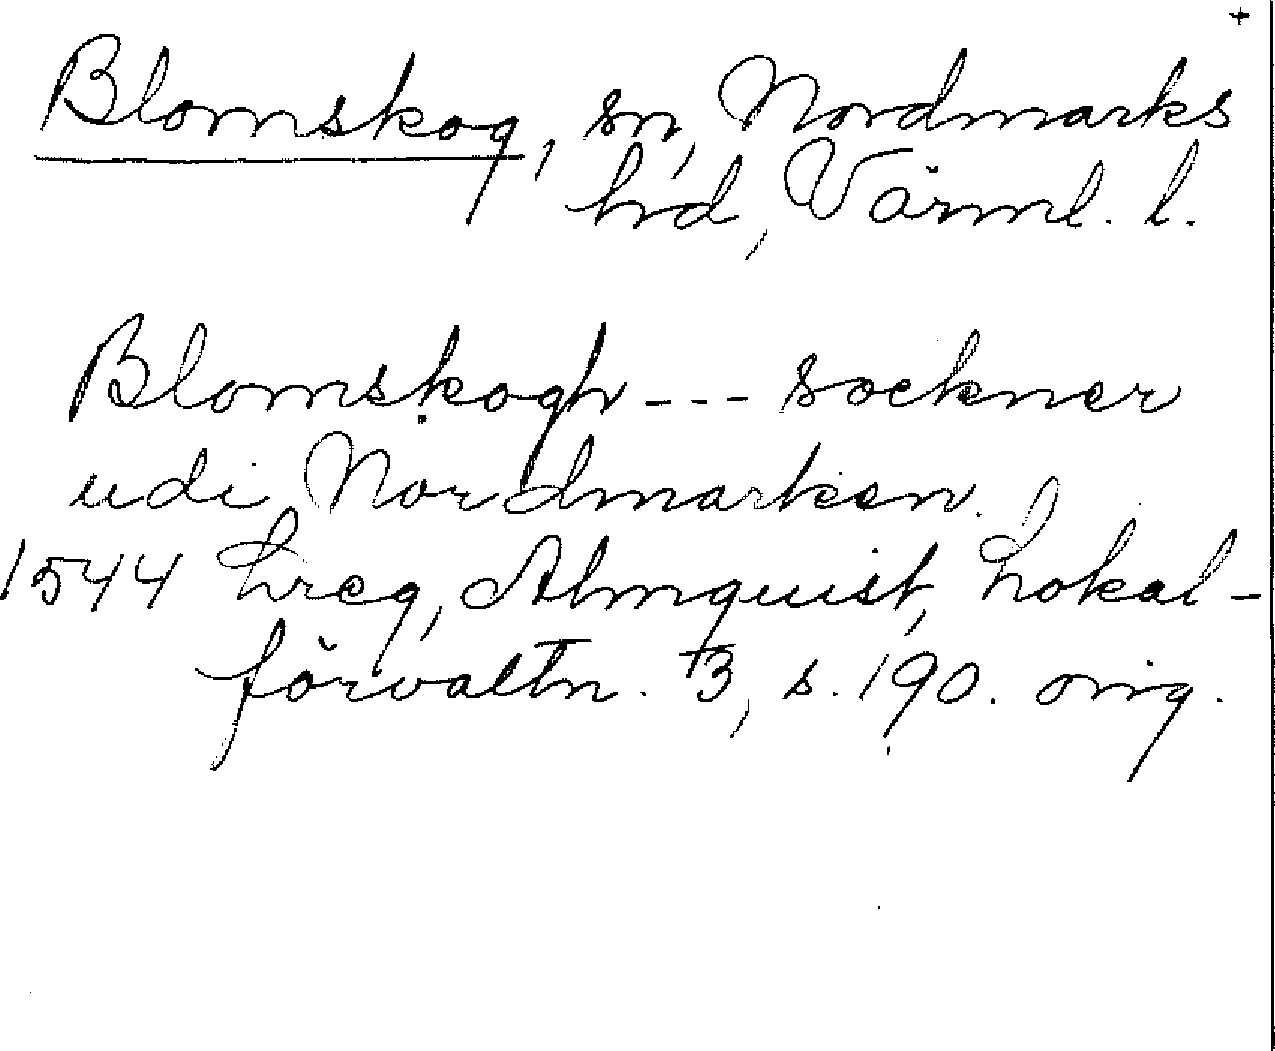 +
Blomskog, sn, Nordmarks
hd, Värml. l.
Blomskogh --- sockner
udi Nordmarken.
1544 Lreg, Almquist, Lokal-
förvaltn. 3, s. 190. orig.